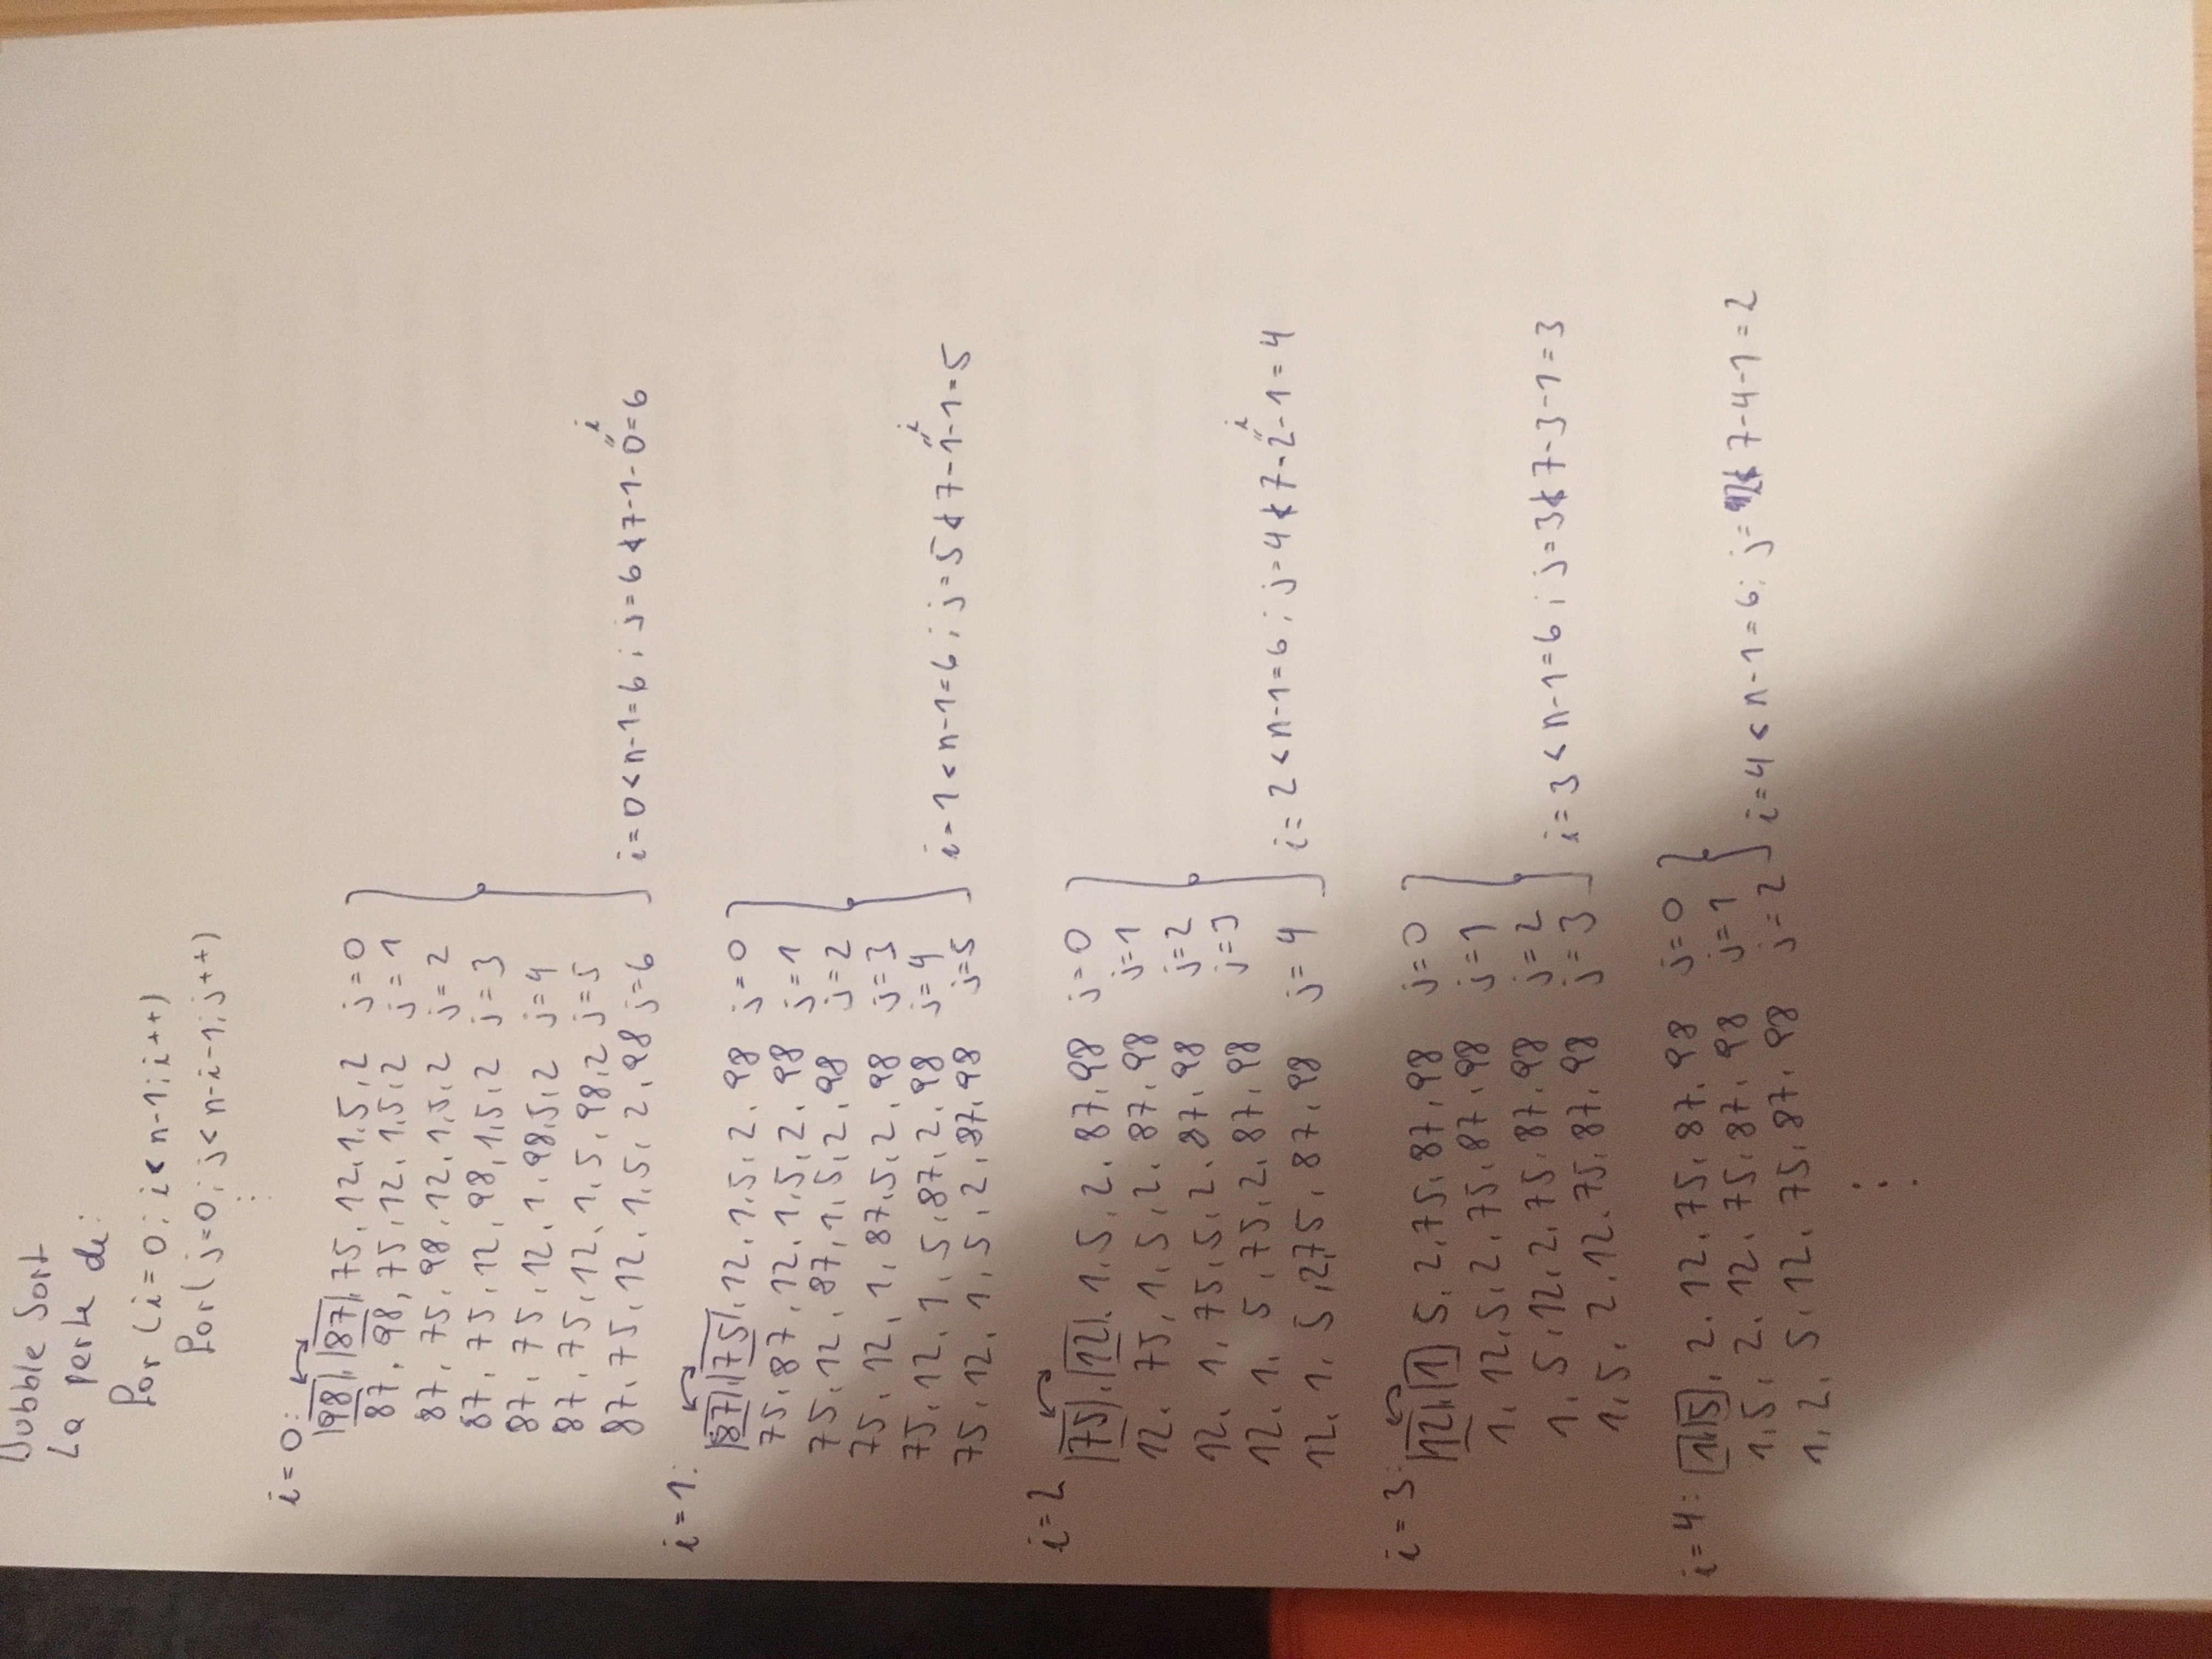 Bubble Sort
La parte de:
For (i=0; i<n-1; i++)
For( j=0; j<n-i-1; j++)
⋮
i=0:
98, 87, 75, 12, 1, 5, 2 j=0
87, 98, 75, 12, 1, 5, 2 j=1
87, 75, 98, 12, 1, 5, 2 j=2
87, 75, 12, 98, 1, 5, 2 j=3
87, 75, 12, 1, 98, 5, 2 j=4
87, 75, 12, 1, 5, 98, 2 j=5
87, 75, 12, 1, 5, 2, 98 j=6 i=0<n-1=6; j=6≮7-1-0=6
i
i=1:
87, 75, 12, 1, 5, 2, 98 j=0
75, 87, 12, 1, 5, 2, 98 j=1
75, 12, 87, 1, 5, 2, 98 j=2
75, 12, 1, 87, 5, 2, 98 j=3
75, 12, 1, 5, 87, 2, 98 j=4
75, 12, 1, 5, 2, 87, 98 j=5 i=1<n-1=6; j=5≮7-1-1=5
i
i=2
75, 12, 1, 5, 2, 87, 98 j=0
12, 75, 1, 5, 2, 87, 98 j=1
12, 1, 75, 5, 2, 87, 98 j=2
12, 1, 5, 75, 2, 87, 98 j=3
12, 1, 5, 2, 75, 87, 98 j=4 i=2<n-1=6; j=4≮7-2-1=4
i
i=3:
12, 1 5, 2, 75, 87, 98 j=0
1, 12, 5, 2, 75, 87, 98 j=1
1, 5, 12, 2, 75, 87, 98 j=2
1, 5, 2, 12, 75, 87, 98 j=3 i=3<n-1=6; j=3≮7-3-1=3
i=4: 1, 5, 2, 12, 75, 87, 98 j=0
1, 5, 2, 12, 75, 87, 98 j=1
1, 2, 5, 12, 75, 87, 98 j=2 i=4<n-1=6; j=2≮7-4-1=2
⋮